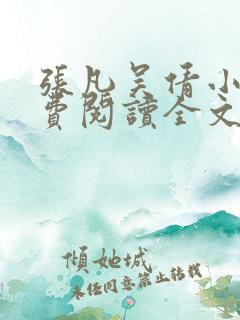 張凡吳倩小
費閱讀全文
傾她城
未經同意禁止轉載